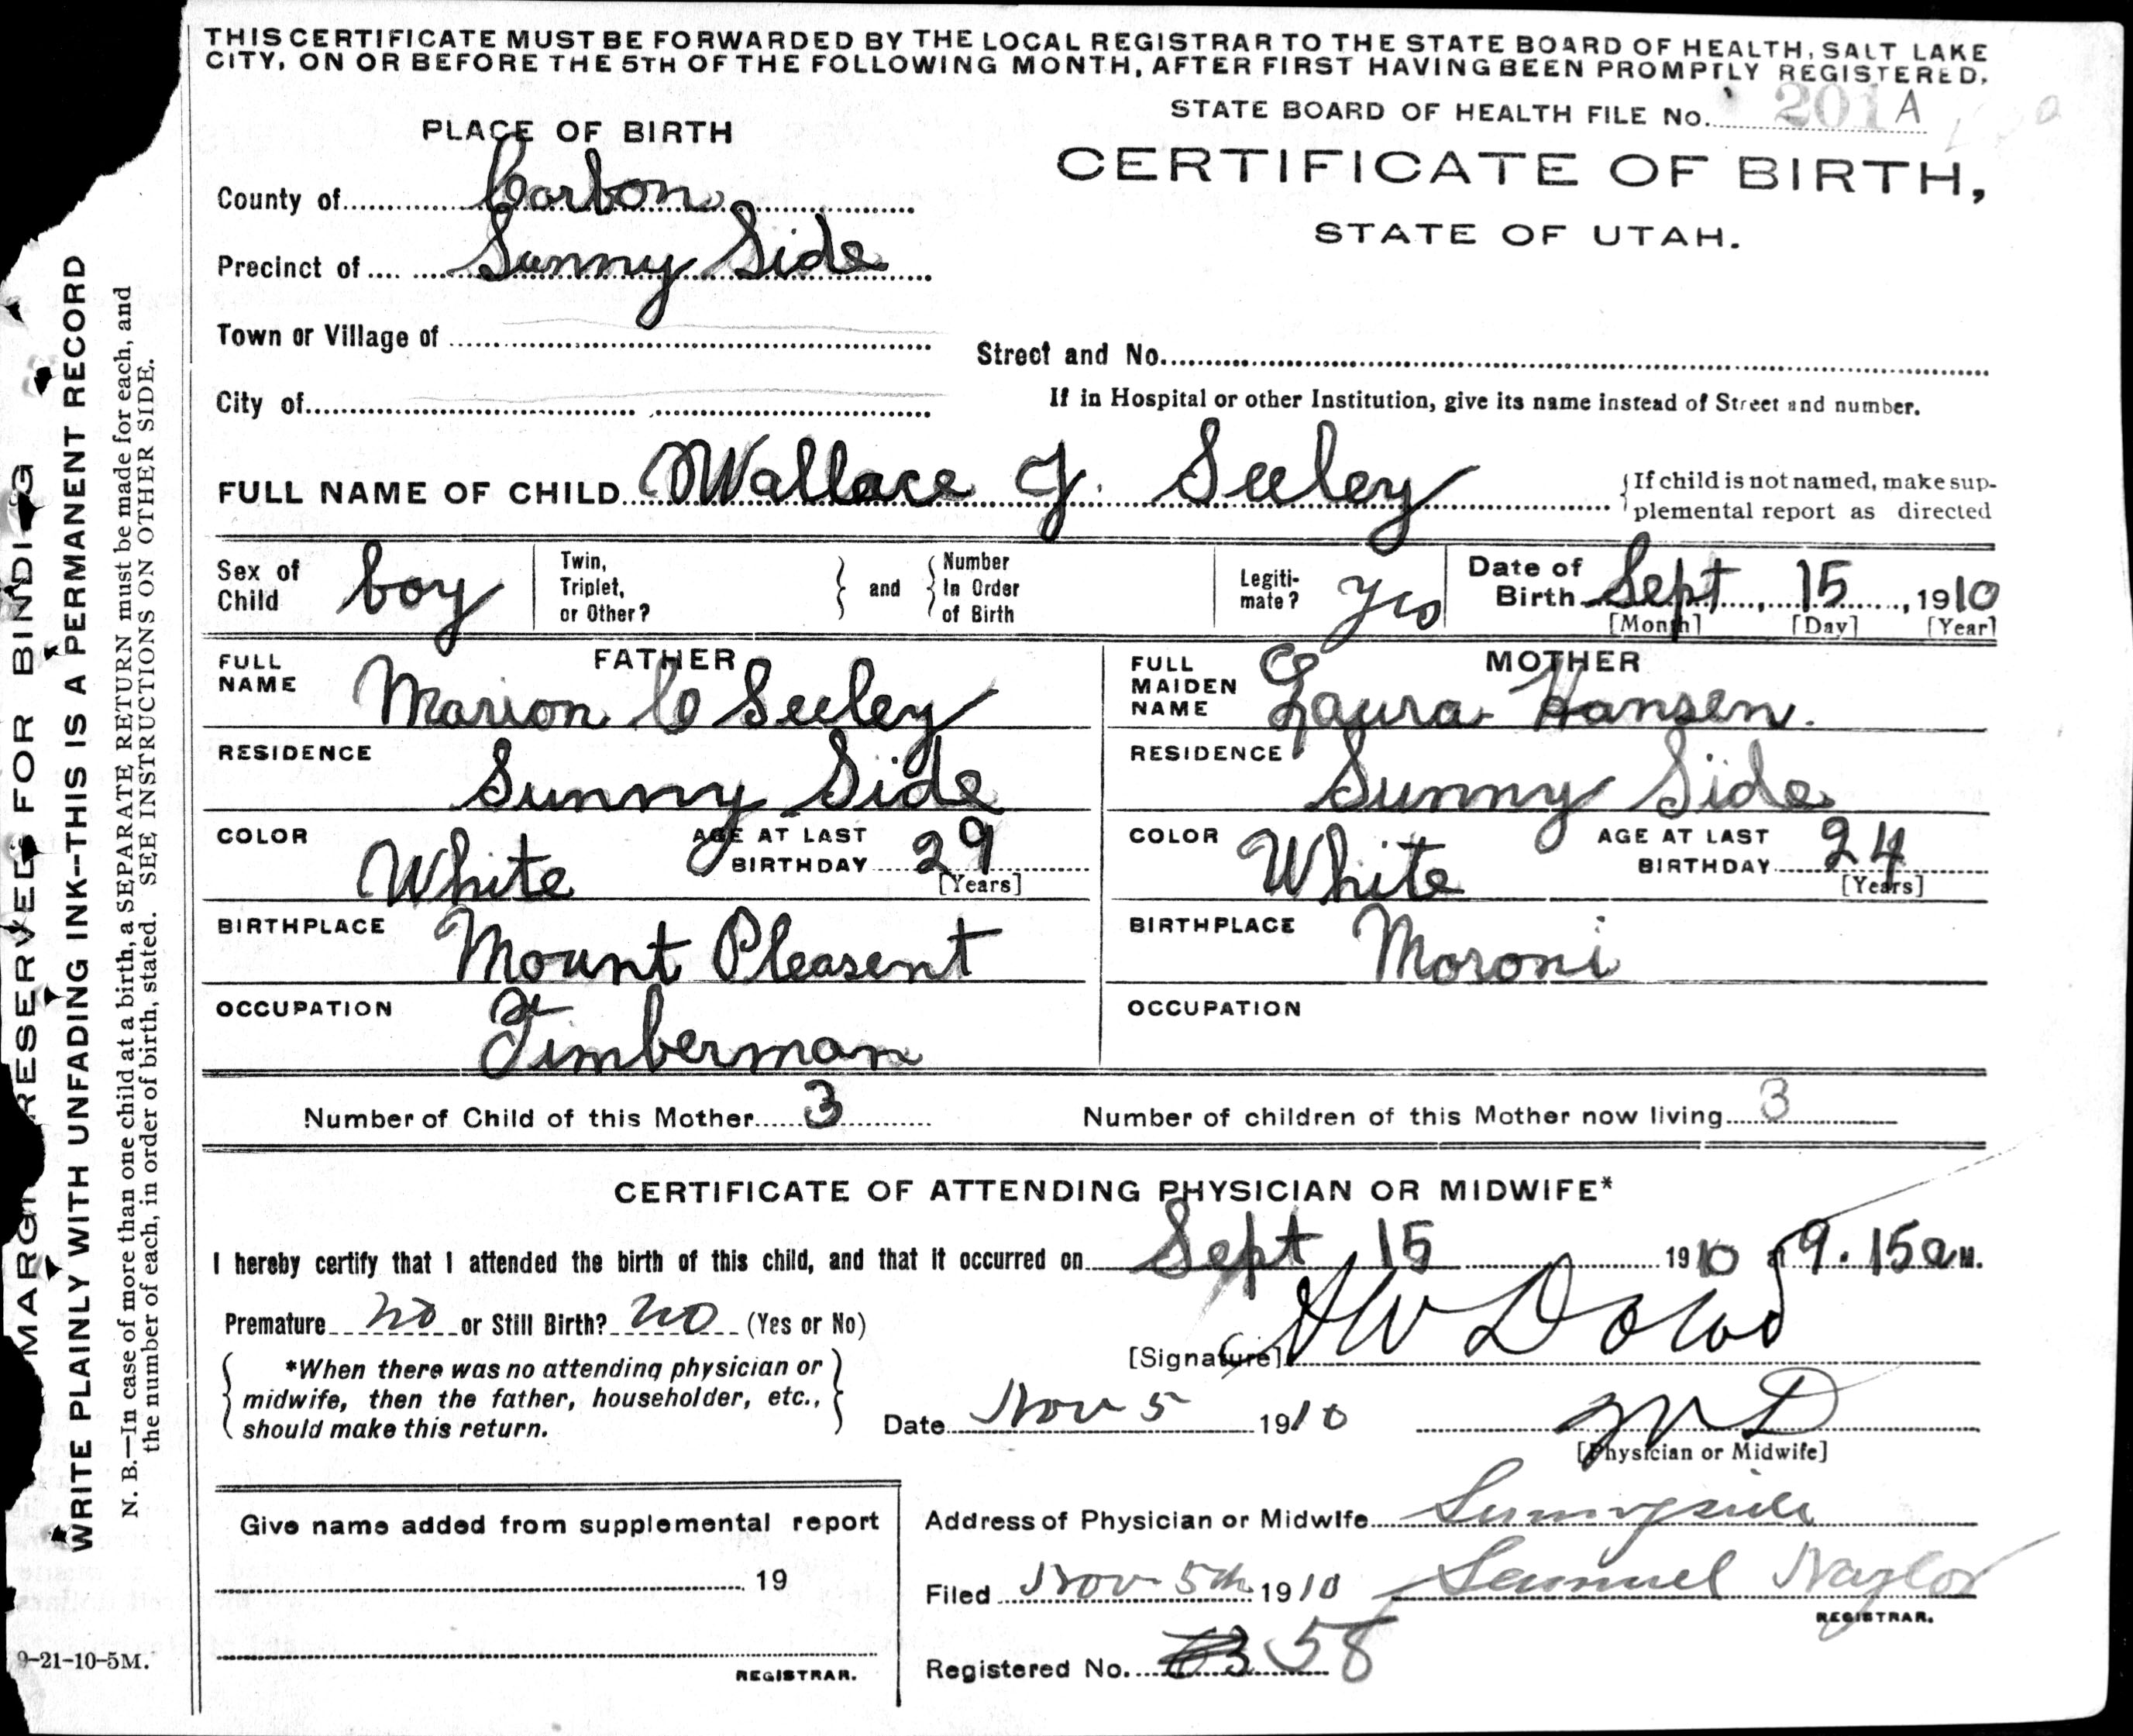 THIS CERTIFICATE MUST BE FORWARDED BY THE LOCAL REGISTRAR TO THE STATE BOARD OF HEALTH, SALT LAKE
CITY, ON OR BEFORE THE 5TH OF THE FOLLOWING MONTH, AFTER FIRST HAVING BEEN PROMPTLY REGISTERED.
STATE BOARD OF HEALTH FILE No. 201 A
PLACE OF BIRTH
CERTIFICATE OF BIRTH,
STATE OF UTAH.
County of Carbon
Precinct of Sunny Side
Town or Village of
Street and No.
City of
If in Hospital or other Institution, give its name instead of Street and number.
FULL NAME OF CHILD Wallace J. Seeley
If child is not named, make sup-
plemental report as directed
Sex of Child boy
Twin, Triplet, or Other?
and
Number In Order of Birth
Legiti-mate? Yes
Date of Birth Sept 15, 1910
[Month] [Day] [Year]
FATHER
FULL NAME Marion C Seeley
RESIDENCE Sunny Side
COLOR White
AGE AT LAST BIRTHDAY 29
[Years]
BIRTHPLACE Mount Pleasent
OCCUPATION Timberman
MOTHER
FULL MAIDEN NAME Laura Hansen.
RESIDENCE Sunny Side
COLOR White
AGE AT LAST BIRTHDAY 24
[Years]
BIRTHPLACE Moroni
OCCUPATION
Number of Child of this Mother 3
Number of children of this Mother now living 3
CERTIFICATE OF ATTENDING PHYSICIAN OR MIDWIFE*
I hereby certify that I attended the birth of this child, and that it occurred on Sept 15 1910 at 9.15 a M.
Premature no or Still Birth? no (Yes or No)
[Signature] H W Dowd
*When there was no attending physician or
midwife, then the father, householder, etc.,
should make this return.
Date Nov 5 1910
M D
[Physician or Midwife]
Give name added from supplemental report
19
REGISTRAR.
Address of Physician or Midwife Sunnyside
Filed Nov 5th 1910 Samuel Naylor
REGISTRAR.
Registered No. 58
9-21-10-5M.
MARGI RESERVED FOR BINDI G
WRITE PLAINLY WITH UNFADING INK--THIS IS A PERMANENT RECORD
N. B.—In case of more than one child at a birth, a SEPARATE RETURN must be made for each, and
the number of each, in order of birth, stated. SEE INSTRUCTIONS ON OTHER SIDE.